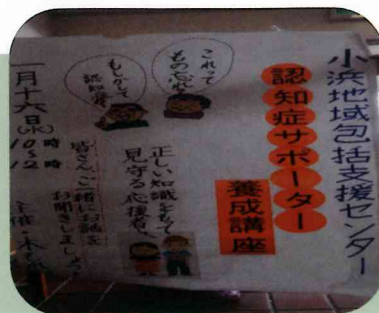 小浜地域包括支援センター
認知症サポーター
養成講座
これって
もの忘れ
もしかして
認知症
正しい知識をもって
見守る応援者へ
皆さんご一緒にお話を
お聞きしましょう
一月十六日(水)
10時
〜
12時
主催